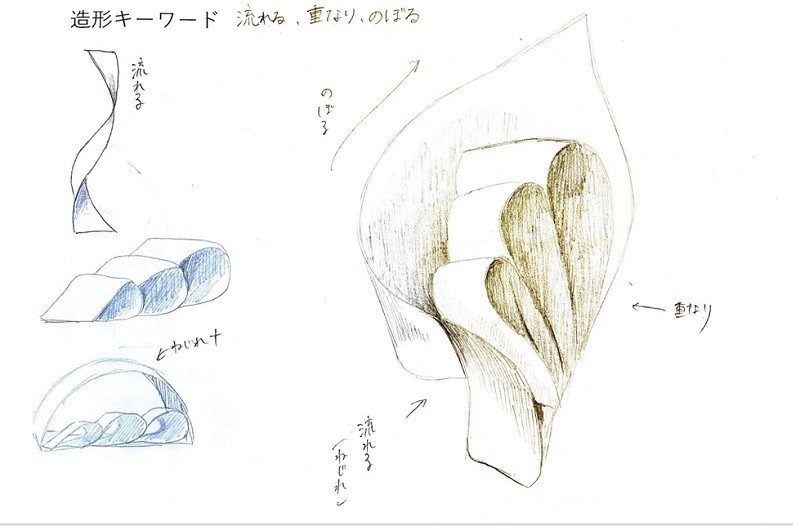 造形キーワード 流れる、重なり、のぼる
流れる
のぼる
重なり
ねじれ+
流れる
(ねじれ)